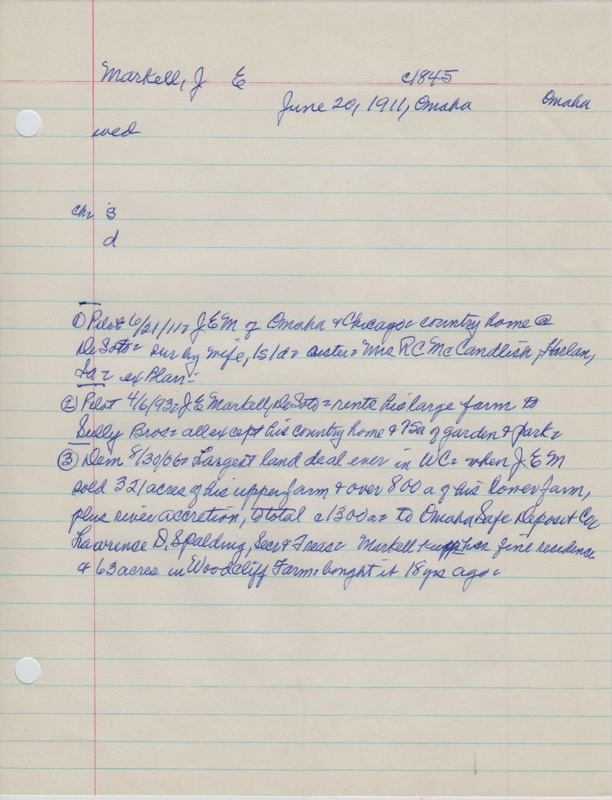 Markell, J E c1845
June 20, 1911, Omaha Omaha
wed
ch: s
d
① Pilot 6/21/11: J E M of Omaha & Chicago: country home @
DeSoto: sur by wife, 1s/d: sister: Mrs R C McCandlish, Harlan,
Ia:
② Pilot 4/6/93: J E Markell, DeSoto: rents his large farm to
Bros: all except his country home & 75a of garden & park:
③ Dem 8/30/06: Largest land deal ever in WC: when J E M
sold 321 acres of his upper farm & over 800 a of his lower farm,
plus river accretion, total c1300a: to Omaha Safe Deposit Co:
Lawrence D. Spalding, Sec & Treas: Markell his fine residence
& 63 acres in Woodcliff Farm: bought it 18 yrs ago: